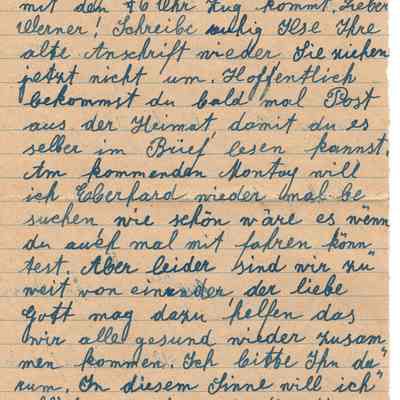 mit den 76 Uhr Zug kommt. Lieber
Werner! Schreibe ruhig Ilse Ihre
alte Anschrift wieder. Sie ziehen
jetzt nicht um. Hoffentlich
bekommst du bald mal Post
aus der Heimat, damit du es
selber im Brief lesen kannst.
Am kommenden Montag will
ich Eberhard wieder mal be
suchen wie schön wäre es wenn
du auch mal mit fahren könn
test. Aber leider sind wir zu
weit von einander, der liebe
Gott mag dazu helfen das
wir alle gesund wieder zusam
men kommen. Ich bitte Ihn da"
rum. In diesem Sinne will ich"